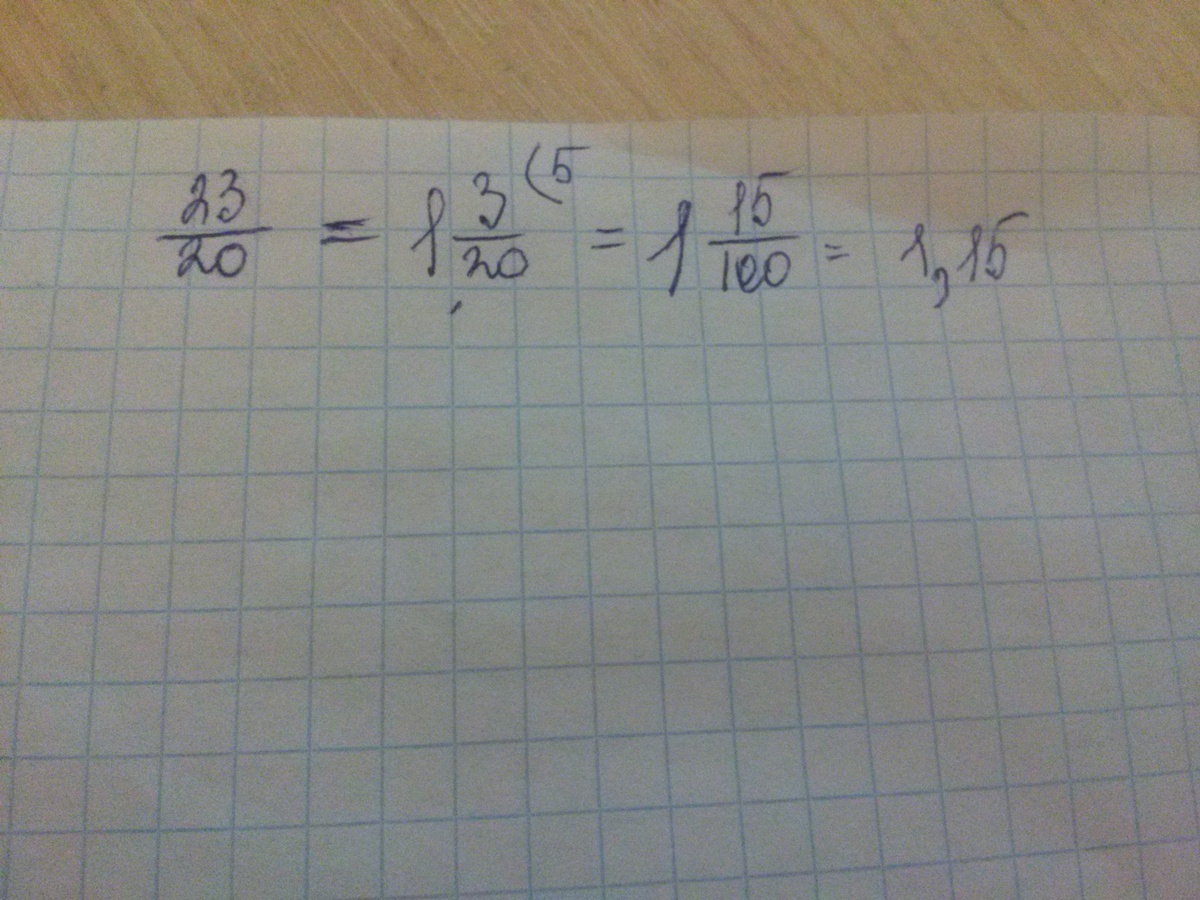 23/20 = 1 3/20 (5 = 1 15/100 = 1,15